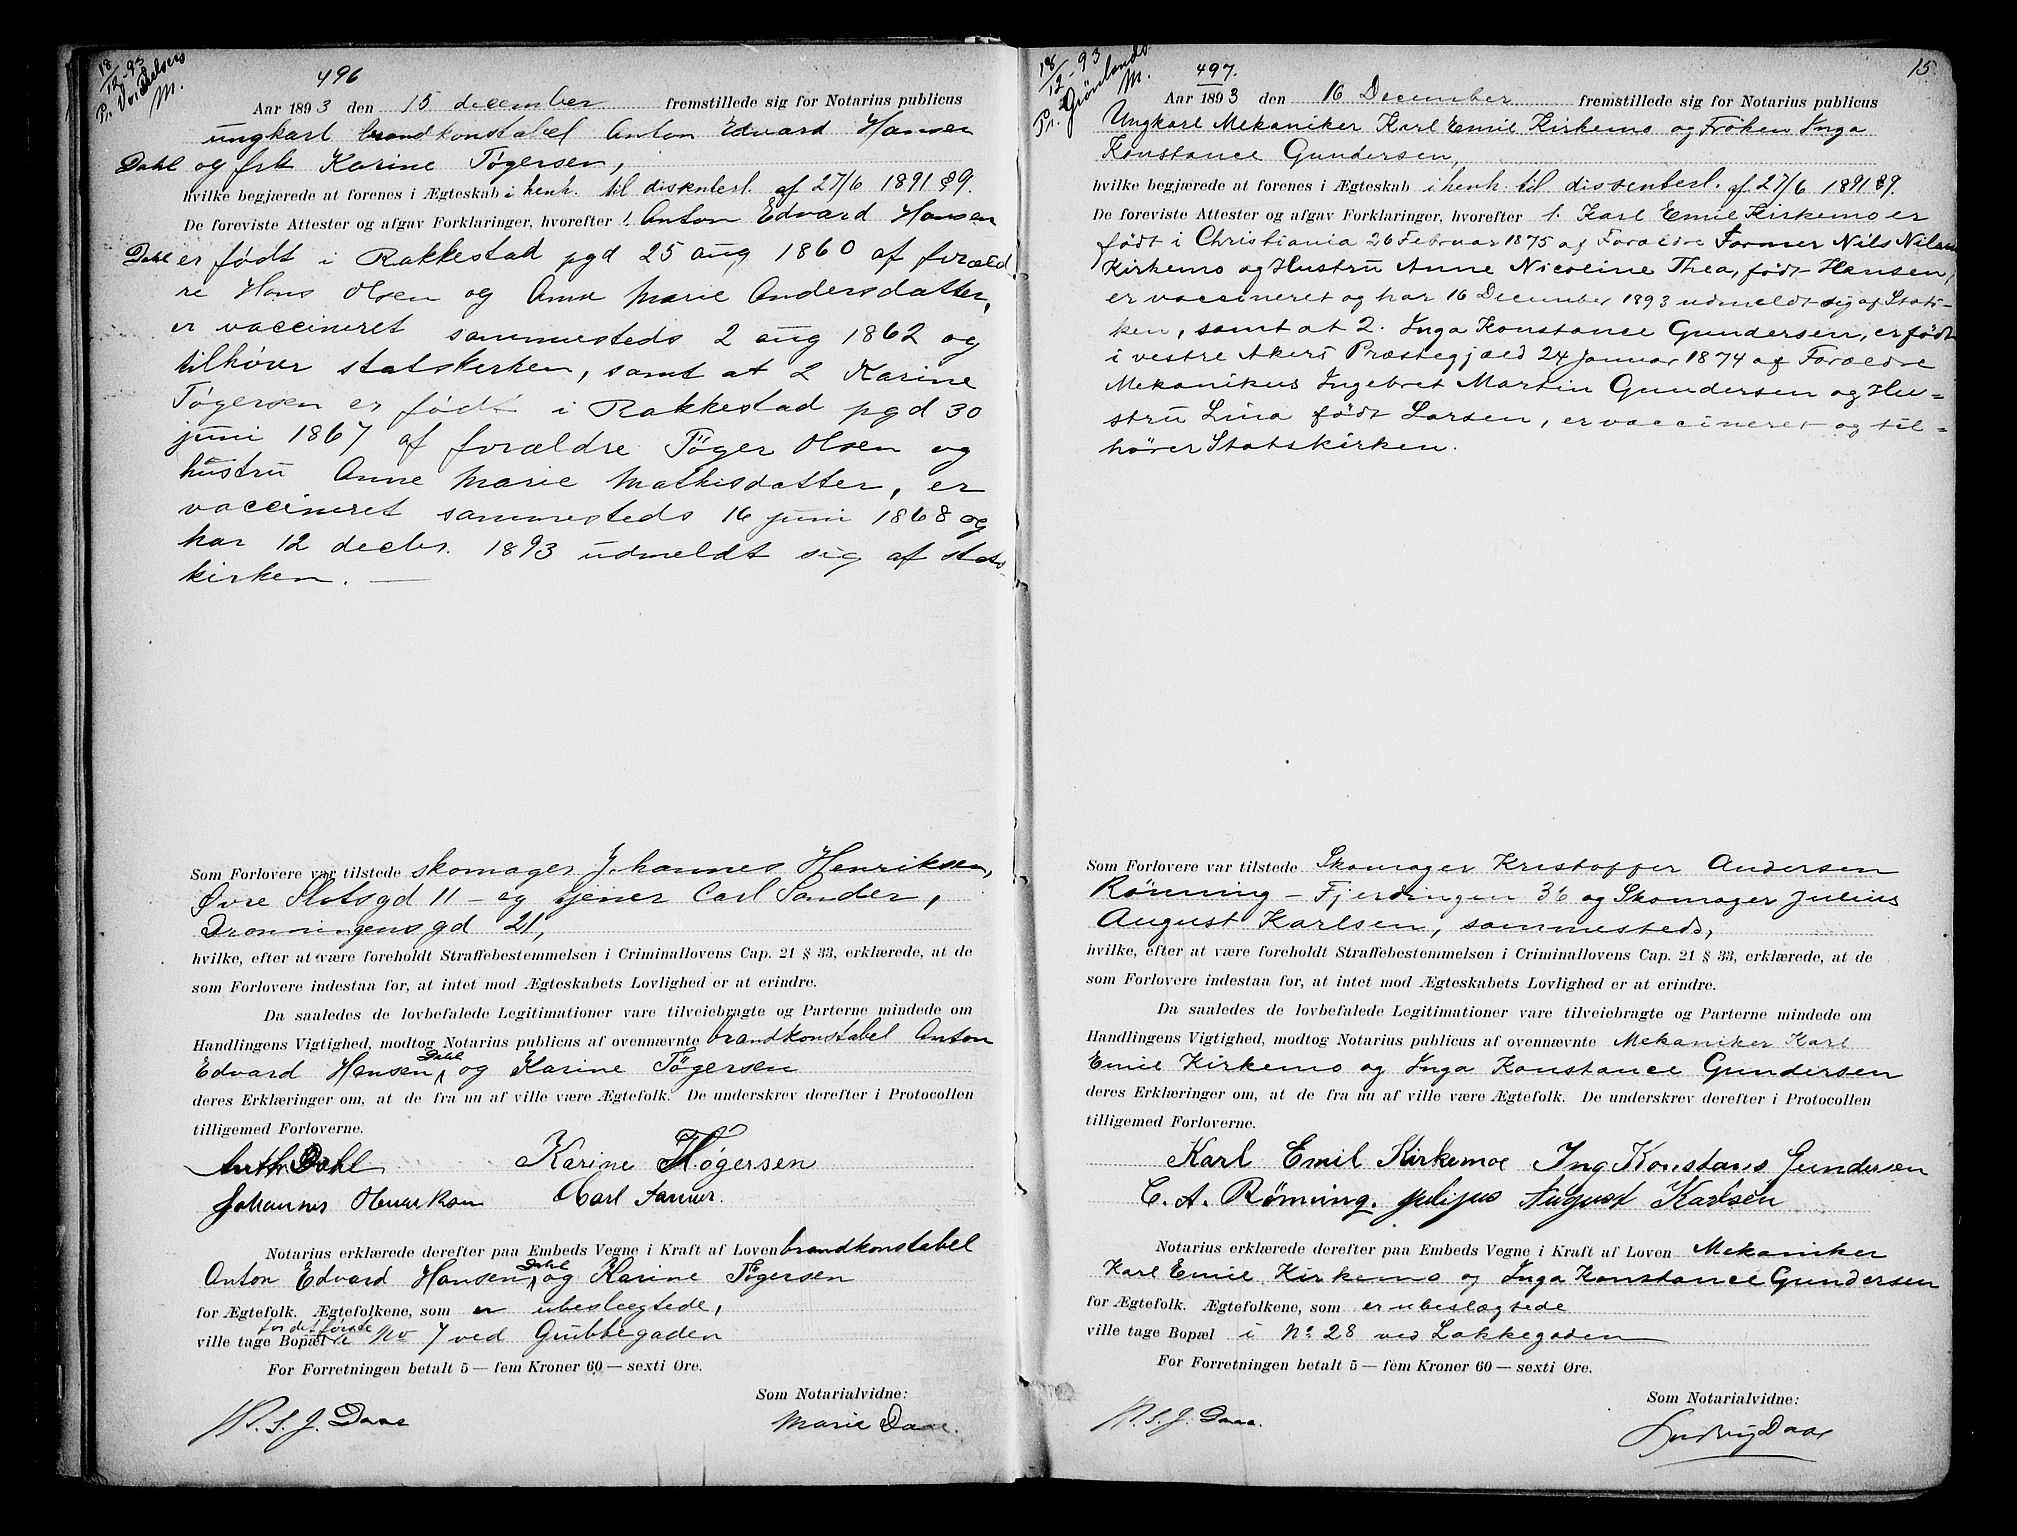 18/12-93
M.
496
Aar 1893 den 15 december fremstillede sig for Notarius publicus
ungkarl brandkonstabel Anton Edvard Hansen
Dahl og frk Karine Tøgersen,
hvilke begjærede at forenes i Ægteskab i henh. til dissenterl. af 27/6 1891 §9.
De foreviste Attester og afgav Forklaringer, hvorefter 1. Anton Edvard Hansen
Dahl er født i Rakkestad pgd 25 aug 1860 af foræld-
re Hans Olsen og Anne Marie Andersdatter,
er vaccineret sammesteds 2 aug 1862 og
tilhører statskirken, samt at 2 Karine
Tøgersen er født i Rakkestad pgd 30
juni 1867 af forældre Tøger Olsen og
hustru Anne Marie Mathisdatter, er
vaccineret sammesteds 16 juni 1868 og
har 12 decbr. 1893 udmeldt sig af stats-
kirken. —
Som Forlovere var tilstede skomager Johannes Henriksen,
Øvre Slotsgd 11 – og tjener Carl Sander,
Dronningensgd 21,
hvilke, efter at være foreholdt Straffebestemmelsen i Criminallovens Cap. 21 § 33, erklærede, at de
som Forlovere indestaa for, at intet mod Ægteskabets Lovlighed er at erindre.
Da saaledes de lovbefalede Legitimationer vare tilveiebragte og Parterne mindede om
Handlingens Vigtighed, modtog Notarius publicus af ovennævnte brandkonstabel Anton
Edvard Hansen Dahl og Karine Tøgersen
deres Erklæringer om, at de fra nu af ville være Ægtefolk. De underskrev derefter i Protocollen
tilligemed Forloverne.
Dahl Karine Thøgersen
Johannes Henriksen Carl
Notarius erklærede derefter paa Embeds Vegne i Kraft af Loven brandkonstabel
Anton Edvard Hansen Dahl og Karine Tøgersen
for Ægtefolk. Ægtefolkene, som er ubeslegtede,
for det første
ville tage Bopæl i No 7 ved Grubbegaden
For Forretningen betalt 5 — fem Kroner 60 — sexti Øre.
Som Notarialvidne:
Daae
Marie Daae.
18/12-93
Pr. Grønlands
M.
497.
15
Aar 1893 den 16 December fremstillede sig for Notarius publicus
Ungkarl Mekaniker Karl Emil Kirkemo og Frøken Inga
Konstance Gundersen,
hvilke begjærede at forenes i Ægteskab i henh. til dissenterl. af 27/6 1891 §9.
De foreviste Attester og afgav Forklaringer, hvorefter 1. Karl Emil Kirkemo er
født i Christiania 26 Februar 1875 af Forældre Former Nils Nilsen
Kirkemo og Hustru Anne Nicoline Thea, født Hansen,
er vaccineret og har 16 December 1893 udmeldt sig af Statskir-
ken, samt at 2. Inga Konstance Gundersen, er født
i vestre Akers Præstegjæld 24 januar 1874 af Forældre
Mekanikus Ingebret Martin Gundersen og Hu-
stru Lina født Larsen, er vaccineret og til-
hører Statskirken.
Som Forlovere var tilstede Skomager Kristoffer Andersen
Rönning – Fjerdingen 36 og Skomager Julius
August Karlsen, sammesteds,
hvilke, efter at være foreholdt Straffebestemmelsen i Criminallovens Cap. 21 § 33, erklærede, at de
som Forlovere indestaa for, at intet mod Ægteskabets Lovlighed er at erindre.
Da saaledes de lovbefalede Legitimationer vare tilveiebragte og Parterne mindede om
Handlingens Vigtighed, modtog Notarius publicus af ovennævnte Mekaniker Karl
Emil Kirkemo og Inga Konstance Gundersen
deres Erklæringer om, at de fra nu af ville være Ægtefolk. De underskrev derefter i Protocollen
tilligemed Forloverne.
Karl Emil Kirkemoe Inga Konstans Gundersen
C. A. Rønning. Julijus August Karlsen
Notarius erklærede derefter paa Embeds Vegne i Kraft af Loven Mekaniker
Karl Emil Kirkemo og Inga Konstance Gundersen
for Ægtefolk. Ægtefolkene, som er ubeslægtede
ville tage Bopæl i No 28 ved Lakkegaden
For Forretningen betalt 5 — fem Kroner 60 — sexti Øre.
Som Notarialvidne:
Daae.
Ludvig Daae